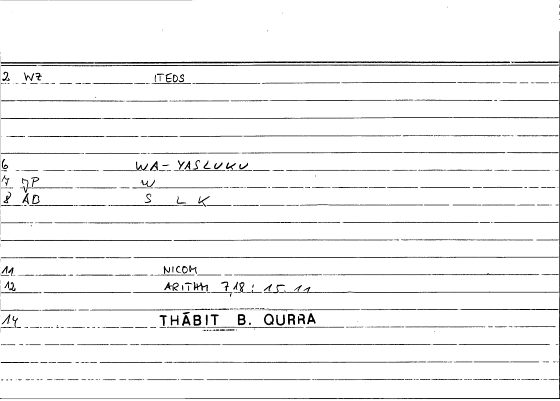 2 WZ ITEDS
6 WA-YASLUKU
7 JP W
8 AB S L K
11 NICOM
12 ARITHM 7,18: 15.11
14 THĀBIT B. QURRA